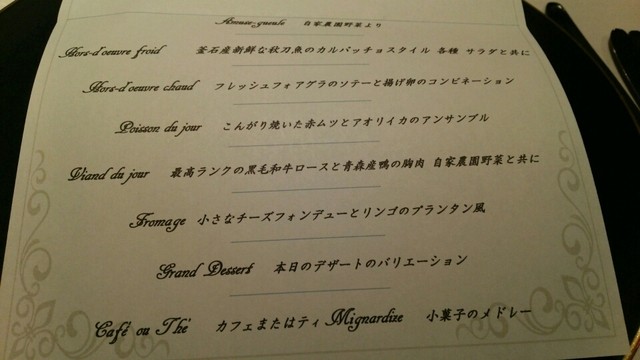 Amuse-gueule 自家農園野菜より
Hors-d'oeuvre froid 釜石産新鮮な秋刀魚のカルパッチョスタイル 各種 サラダと共に
Hors-d'oeuvre chaud フレッシュフォアグラのソテーと揚げ卵のコンビネーション
Poisson du jour こんがり焼いた赤ムツとアオリイカのアンサンブル
Viand du jour 最高ランクの黒毛和牛ロースと青森産鴨の胸肉 自家農園野菜と共に
Fromage 小さなチーズフォンデューとリンゴのブランタン風
Grand Dessert 本日のデザートのバリエーション
Café ou Thé カフェまたはティ Mignardize 小菓子のメドレー